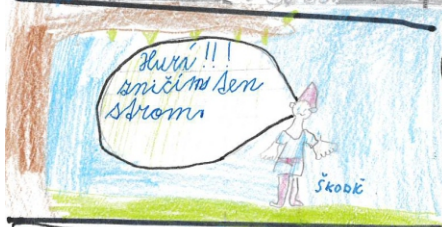 Hurá!!!
zničíms ten
strom.
ŠKODÍČ